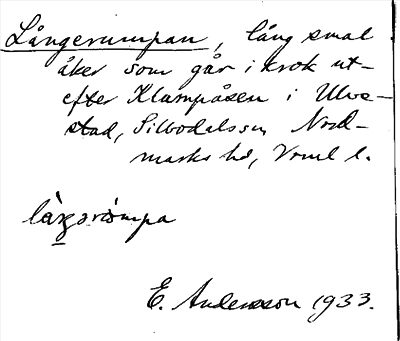 Långerumpan, lång smal
åker som går i krok ut-
efter Klampåsen i Ulve-
stad, Silbodals sn, Nord-
marks hd, Vrml l.
E. Andersson 1933.